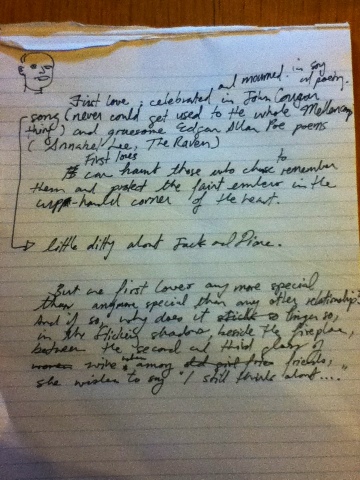 and mourned in song
and poem.
First love, celebrated in John Cougar
song (never could get used to the whole Mellencamp
thing) and gruesome Edgar Allan Poe poems
(Annabel Lee, The Raven)
First loves
can haunt those who chose to remember
them and protect the faint embers in the
corner of the heart.
little ditty about Jack and Diane.
But are first loves any more special
than anymore special than any other relationship?
And if so, why does it stick to linger so,
in the shadows, beside the fireplace,
between the second and third glass of
wine when among old girl friends,
she wishes to say "I still think about...."